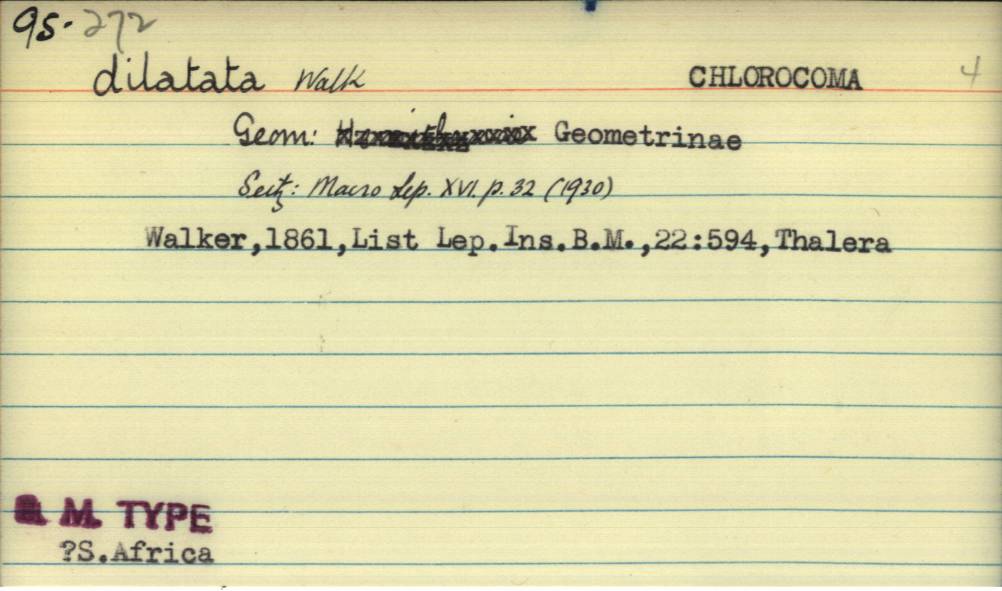 95.272
dilatata Walk CHLOROCOMA 4
Geom: Geometrinae
Seitz: Macro Lep. XVI. p. 32 (1930)
Walker,1861,List Lep.Ins.B.M.,22:594,Thalera
B. M. TYPE
?S.Africa